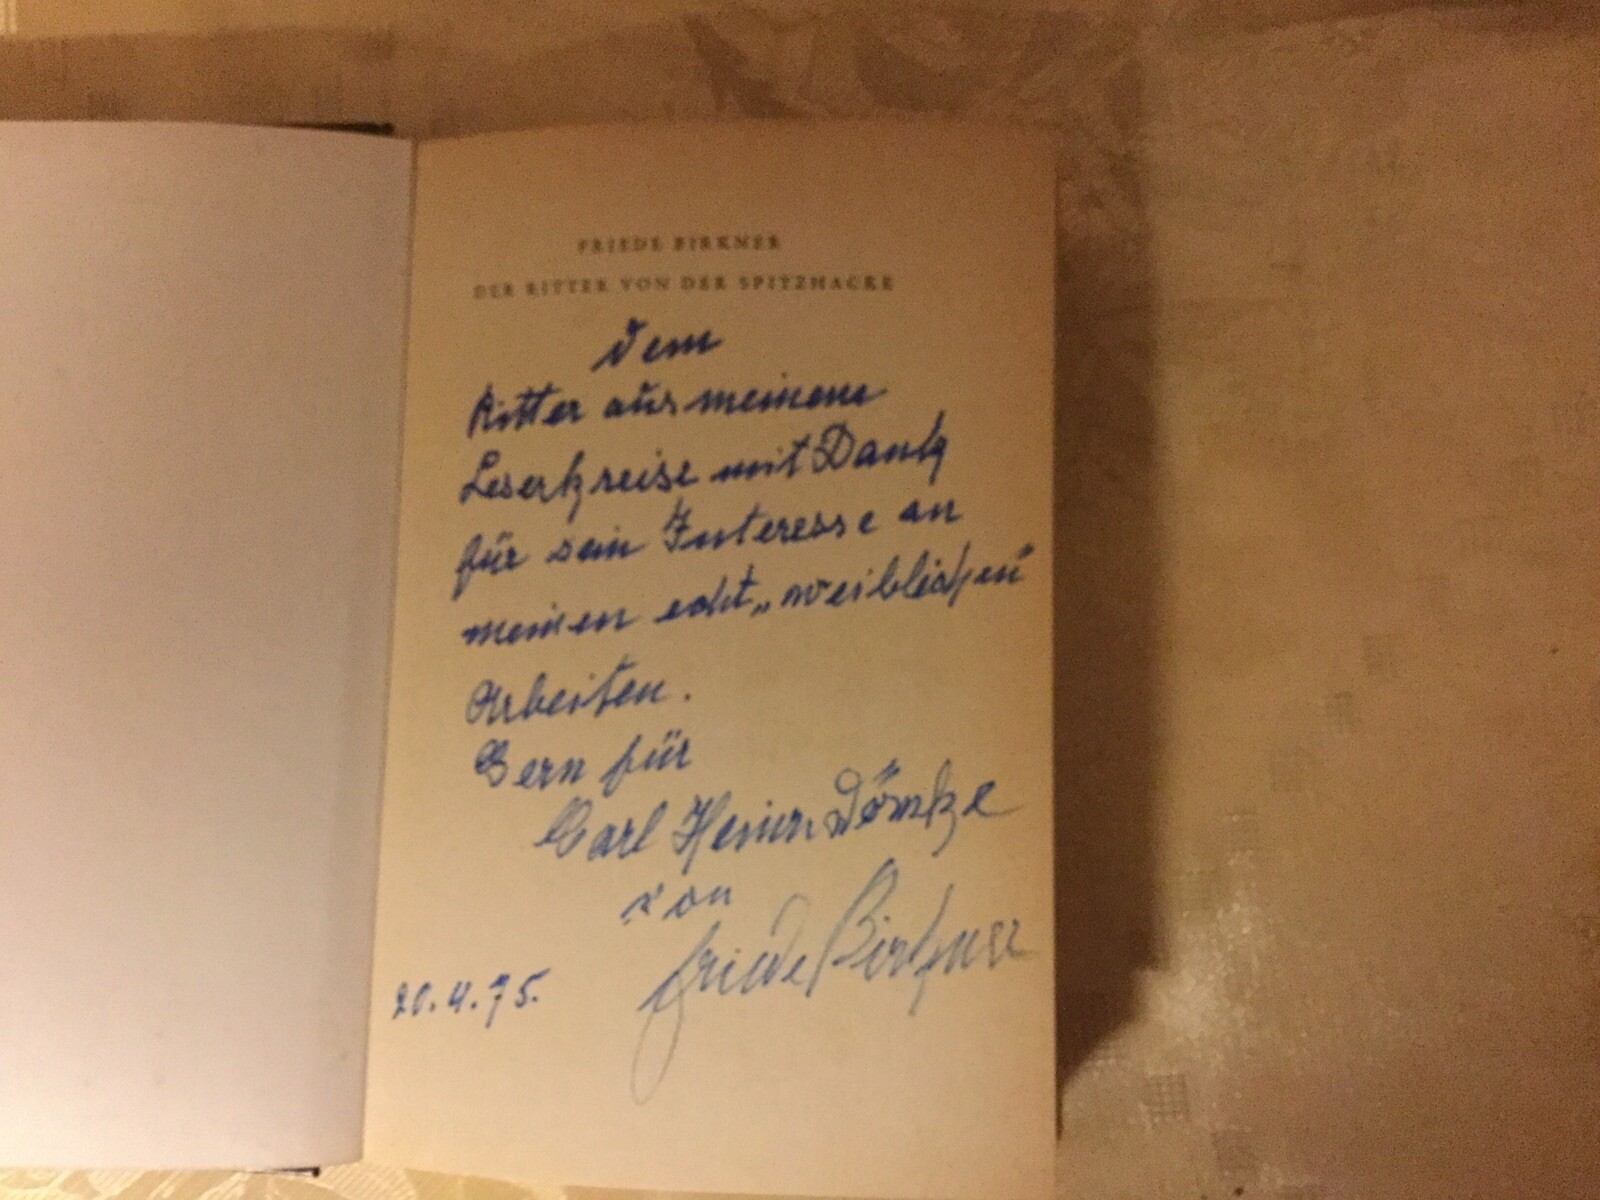 FRIEDE BIRKNER
DER RITTER VON DER SPITZHACKE
Dem
Ritter aus meinem
Leserkreise mit Dank
für sein Interesse an
meinen echt „weiblichen"
Arbeiten.
Gern für
Carl Heinr. Dömke
von
Friede Birkner
20.4.75.